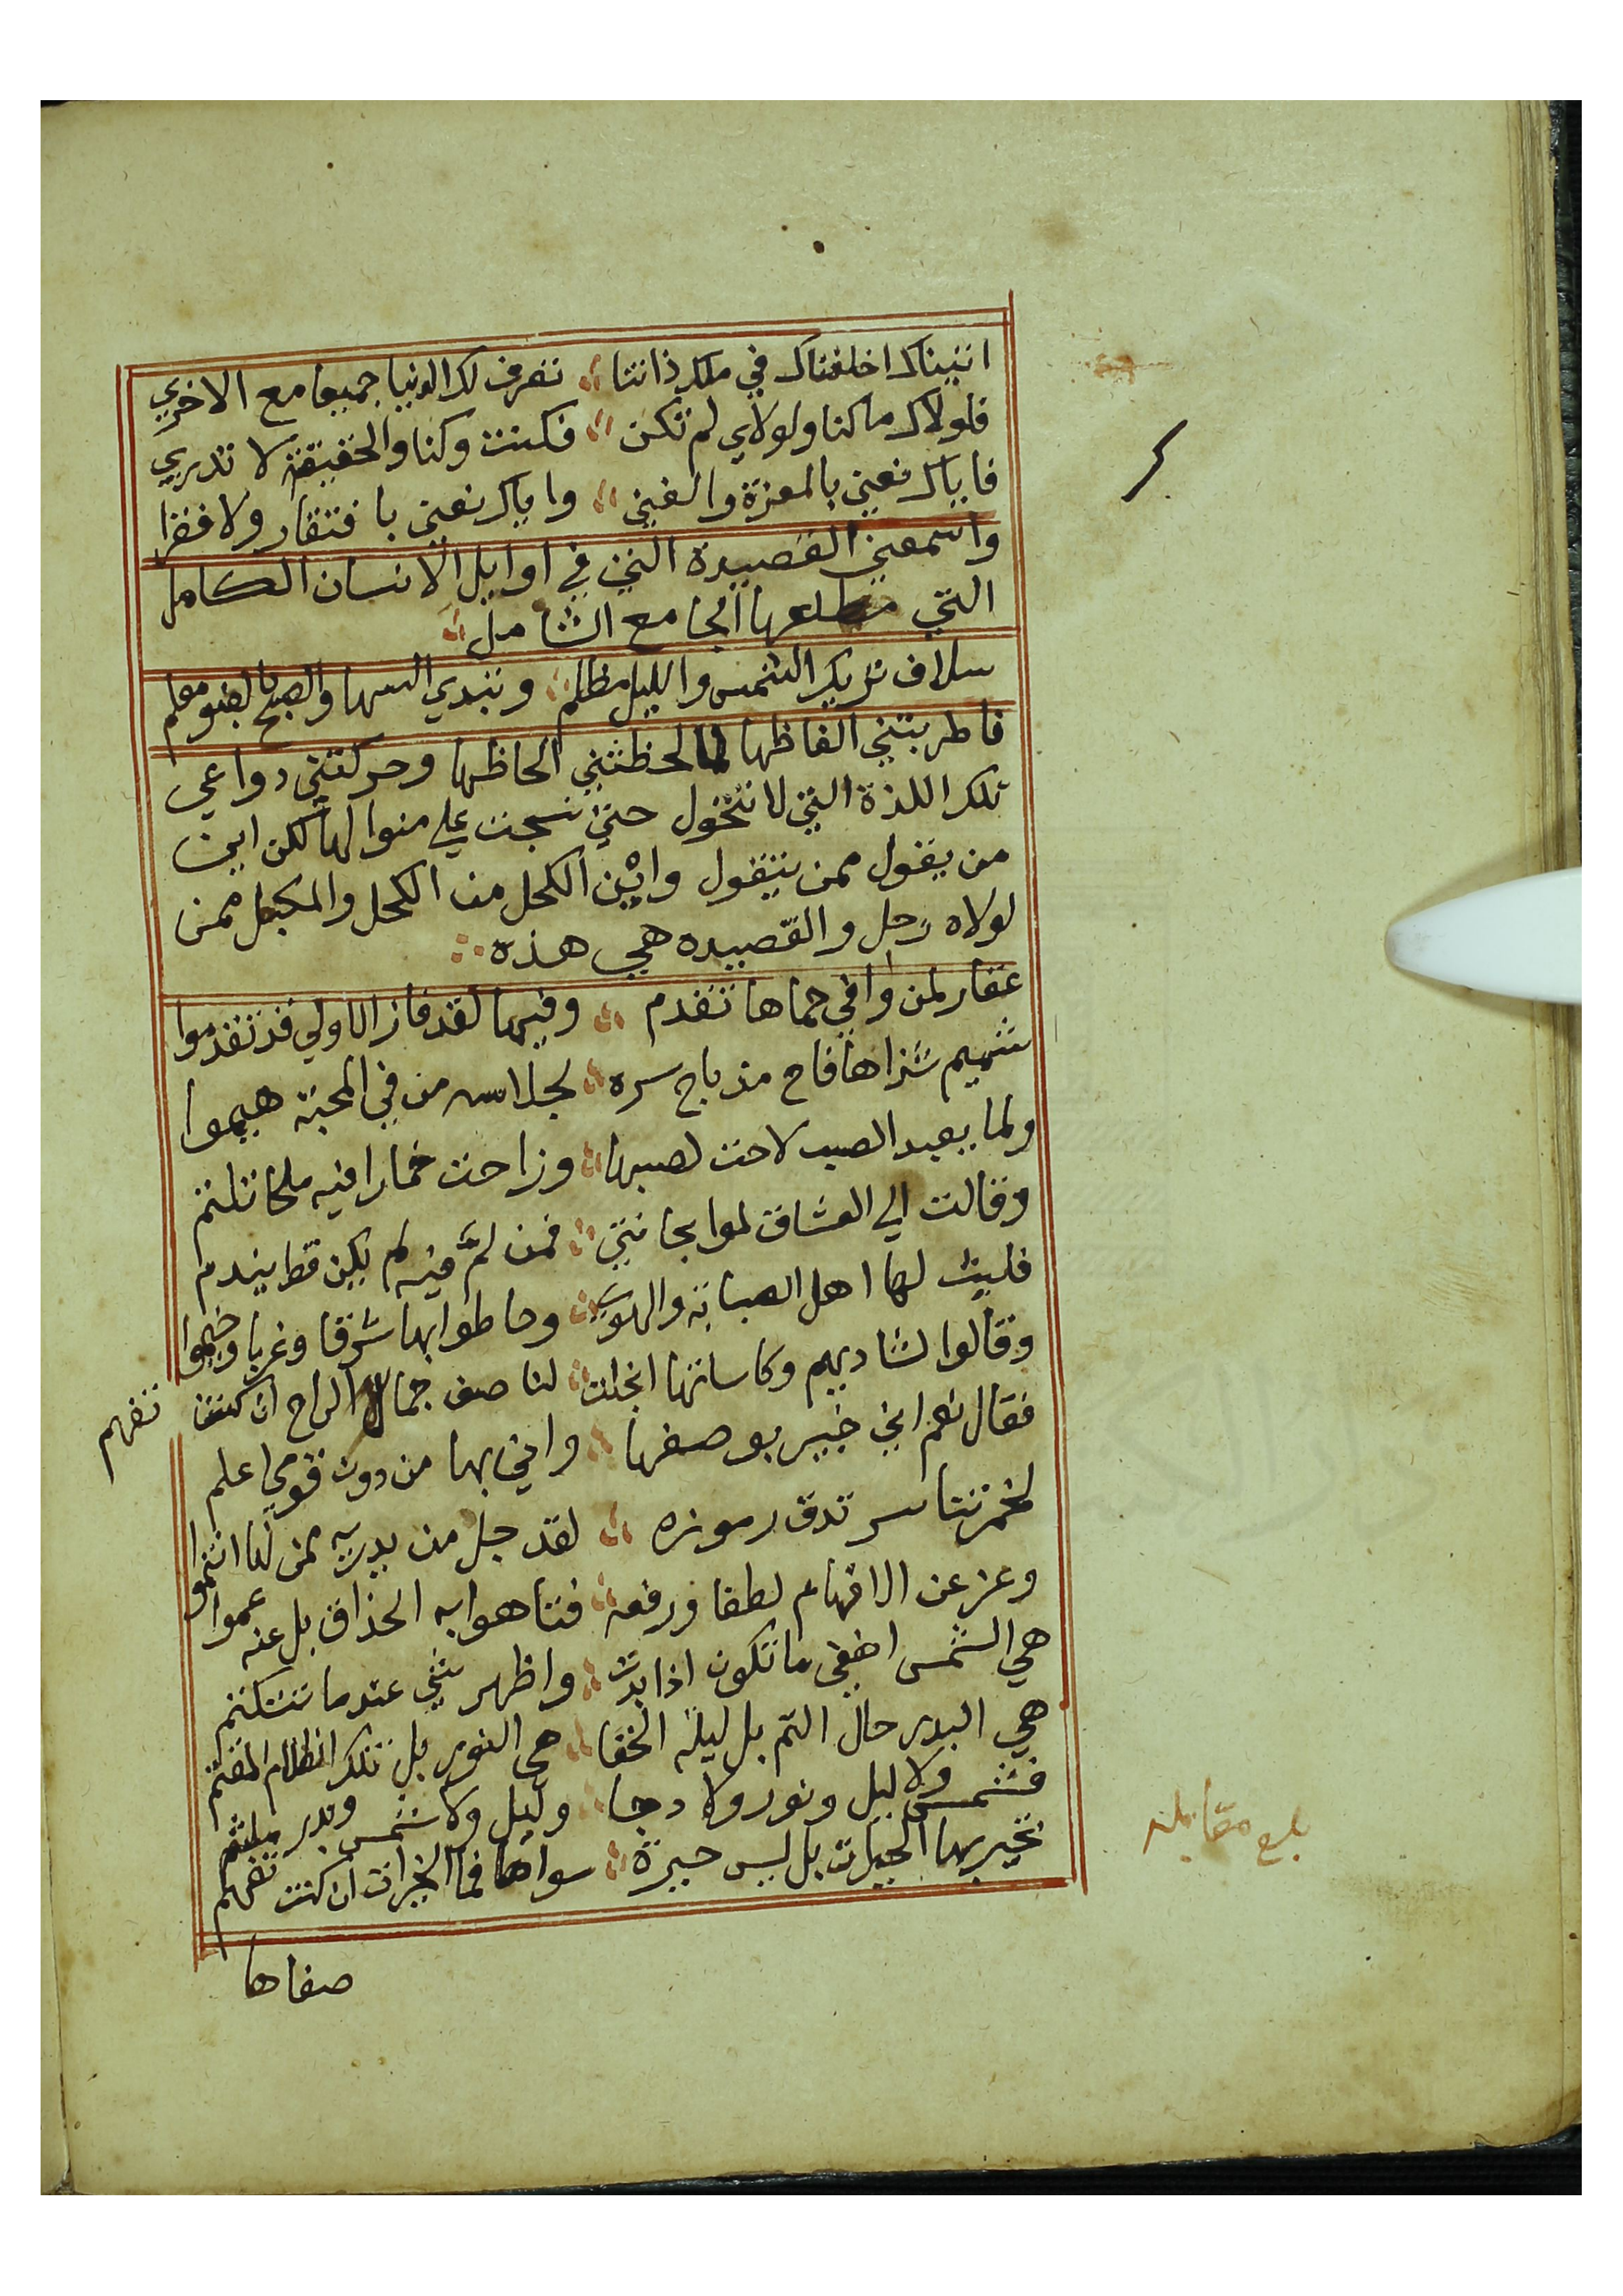 اتيناك اخلفناك في ملك ذاتنا تصرف لك الدنيا جميعا مع الاخري
فلولاك ما كنا ولولاي لم تكن فكنت وكنا والحقيقة لا تدري
فاياك نعني بالمعزة والغني واياك نعني بافتقار ولا فقرا
واسمعني القصيدة التي في اوايل الانسان الكامل
التي مطلعها الجامع الشامل
سلاف تريك الشمس والليل مظلم وتبدي السها والصبح بالضو معلم
فاطربتني الفاظها لما لحظتني الحاظها وحركتني دواعي
تلك اللذة التي لا تتحول حتي نسجت علي منوالها لكن اين
من يقول ممن يتقول واين الكحل من الكحل والمكبل ممن
لولاه رحل والقصيده هي هذه
عقار لمن وافي حماها تقدم وفيها لقد فاز الاولي قد تقدموا
شميم شذاها فاح مذ باح سره لجلاسه من في المحبة هيموا
ولما بعيد الصب لاحت لصبها وزاحت خمارا فيه ملحا تلثم
وقالت الي العشاق لموا بحانتي فمن لم فيه لم يكن قط يندم
فلبت لها اهل الصبابة والهوي وحاطوا بها شرقا وغربا وخيموا
وقالوا لشاديهم وكاساتها انجلت لنا صف جمال الراح ان كنت تفهم
فقال نعم اني خبير بوصفها واني بها من دون قومي اعلم
لخمرتنا سر تدق رموزه لقد جل من يدريه ممن لها انتموا
وعز عن الافهام لطفا ورفعة فتاهوا به الحذاق بل عنه عموا
هي الشمس اخفي ما تكون اذا بدت واظهر شي عندما تتكتم
هي البدر حال التم بل ليلة الخفا هي النور بل تلك الظلام المقتم
فشمس ولا ليل ونور ولا دجا وليل ولا شمس وبدر ملثم
تحير بها الحيرات بل ليس حيرة سواها فما الحيرات ان كنت تفهم
صفاها
بلغ مقابلة